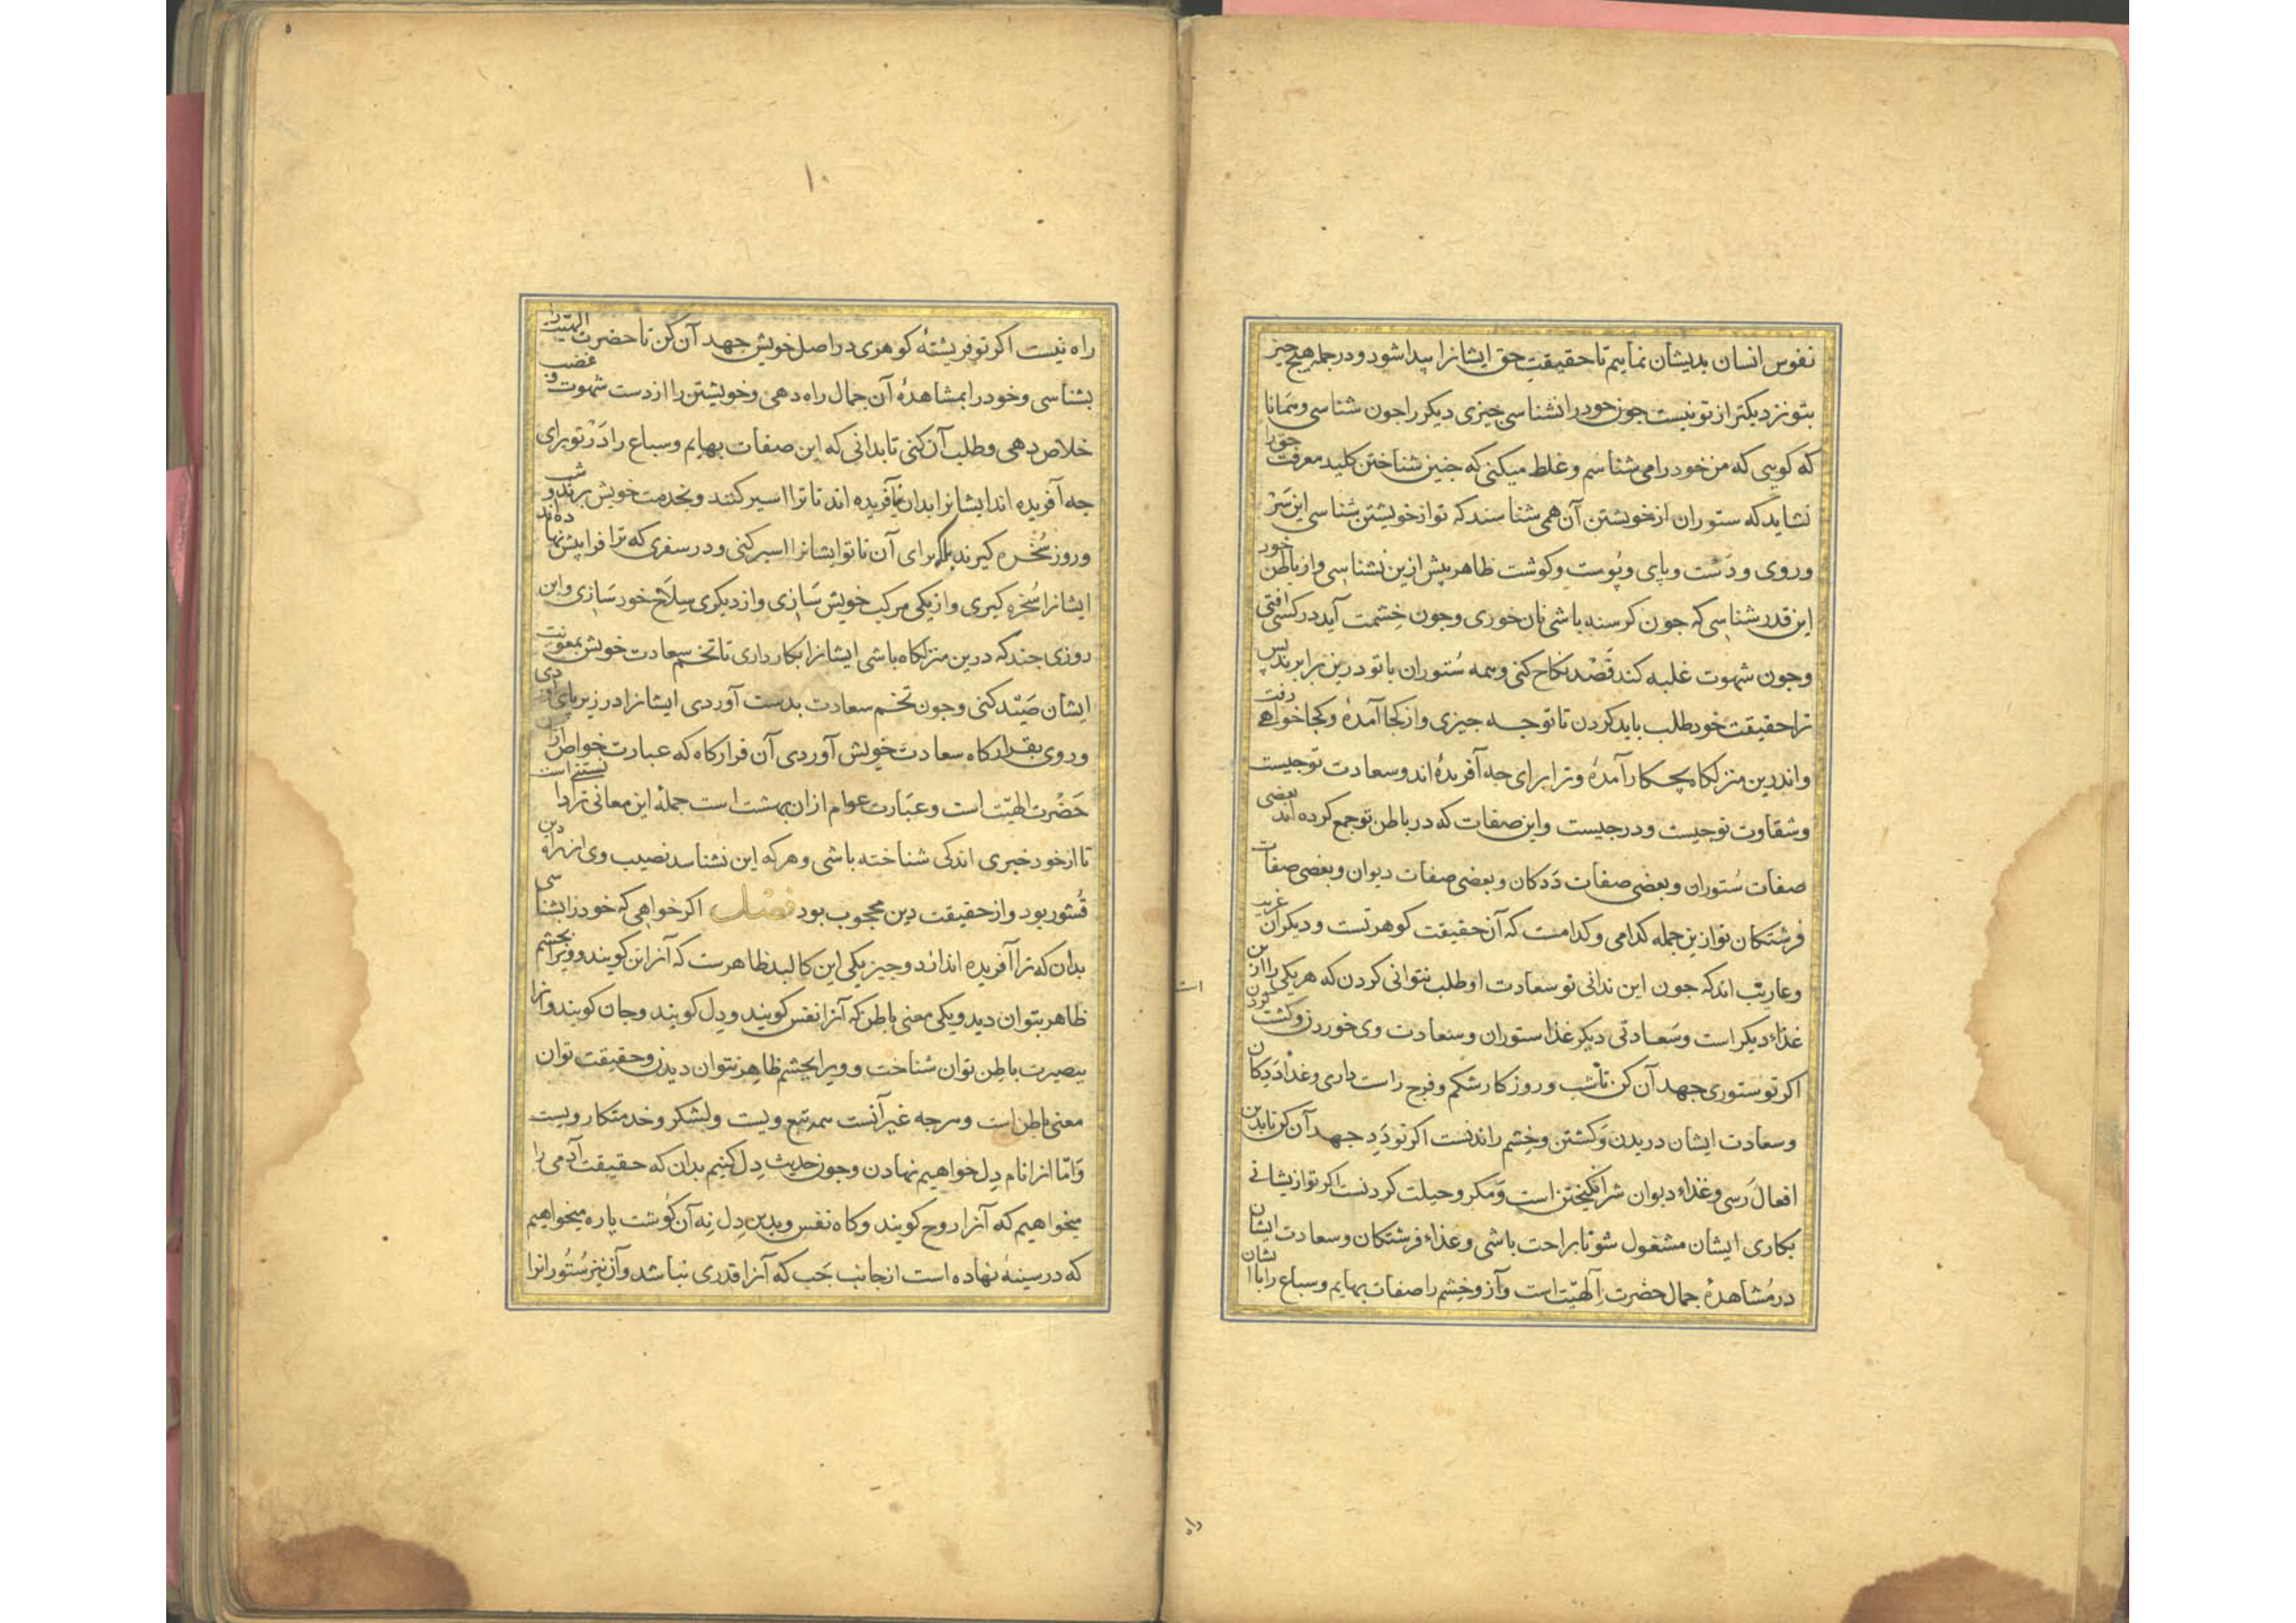 نفوس انسان بدیشان نماییم تا حقیقت حق ایشانرا پیدا شود و در جمله هیچ چیز
بتو نزدیکتر از تو نیست جون خود را نشناسی چیزی دیکر را جون شناسی و همانا
که کویی که من خود را می شناسم و غلط میکنی که جنین شناختن کلید معرفت حق را
نشاید که ستوران از خویشتن آن همی شناسند که تو از خویشتن شناسی این سر
و روی و دست و پای و پوست و کوشت ظاهر بیش ازین نشناسی و از باطن خود
این قدر شناسی که جون کرسنه باشی نان خوری و جون خشمت آید در کسی افتی
و جون شهوت غلبه کند قصد نکاح کنی و همه ستوران با تو درین برابرند پس
ترا حقیقت خود طلب باید کردن تا تو جه جیزی و از کجا آمدهٔ و کجا خواهی رفت
و اندرین منزلکاه بچه کار آمدهٔ و ترا برای جه آفریدهٔ اند و سعادت تو جیست
و شقاوت تو جیست و در جیست و این صفات که در باطن تو جمع کرده اند بعضی
صفات ستوران و بعضی صفات ددکان و بعضی صفات دیوان و بعضی صفات
فرشتکان تو ازین جمله کدامی و کدامست که آن حقیقت کوهر تست و دیکران غریب
و عاریب اند که جون این ندانی تو سعادت او طلب نتوانی کردن که هر یکی را ازین
ات
غذاء دیکر است و سعادتی دیکر غذا ستوران و سعادت وی خوردن و کشت کردن
اکر تو ستوری جهد آن کن تا شب و روز کار شکم و فرج راست داری و غذا ددکان
و سعادت ایشان دریدن و کشتن و خشم راندنست اکر تو دد جهد آن کن تا بدین
افعال رسی و غذاء دیوان شر انکیختن است و مکر و حیلت کردنست اکر تو ازیشانی
بکاری ایشان مشغول شو تا براحت باشی و غذاء فرشتکان و سعادت ایشان
در مشاهدهٔ جمال حضرت الهیت است و آز و خشم را صفات بهایم و سباع را با ایشان
راه
۵
۱۰
راه نیست اکر تو فریشتهٔ کوهری در اصل خویش جهد آن کن تا حضرت الهیت را
بشناسی و خود را بمشاهدهٔ آن جمال راه دهی و خویشتن را از دست شهوت و غضب
خلاص دهی و طلب آن کنی تا بدانی که این صفات بهایم و سباع را در تو برای
جه آفریده اند ایشانرا بدان آفریده اند تا ترا اسیر کنند و بخدمت خویش برند و شب
و روز سخره کیرند بلکه برای آن تا تو ایشانرا اسیر کنی و در سفری که ترا فرا پیش نهاده اند
ایشانرا سخره کیری و از یکی مرکب خویش سازی و از دیکری سلاح خود سازی و این
روزی جند که درین منزلکاه باشی ایشانرا بکار داری تا تخم سعادت خویش بمعونت
ایشان صید کنی و جون تخم سعادت بدست آوردی ایشانرا در زیر پای آوردی
و روی بقرارکاه سعادت خویش آوردی آن قرارکاه که عبارت خواص ازان
حضرت الهیت است و عبارت عوام ازان بهشت است جملهٔ این معانی ترا دانستنی است
تا از خود خبری اندکی شناخته باشی و هر که این نشناسد نصیب وی از راه دین
قشور بود و از حقیقت دین محجوب بود فصل اکر خواهی که خود را بشناسی
بدان که ترا آفریده اند از دو جیز یکی این کالبد ظاهرست که آنرا تن کویند و ویرا بجشم
ظاهر بتوان دید و یکی معنی باطن که آنرا نفس کویند و دل کویند و جان کویند و آنرا
ببصیرت باطن توان شناخت و ویرا بجشم ظاهر نتوان دیدن و حقیقت توان
معنی باطن است و هر جه غیر آنست همه تبع ویست و لشکر و خدمتکار ویست
و اما انرا نام دل خواهیم نهادن و جون حدیث دل کنیم بدان که حقیقت آدمی را
میخواهیم که آنرا روح کویند و کاه نفس و بدین دل نه آن کوشت پاره میخواهیم
که در سینه نهاده است از جانب جب که آنرا قدری نباشد و آن نیز ستورانرا